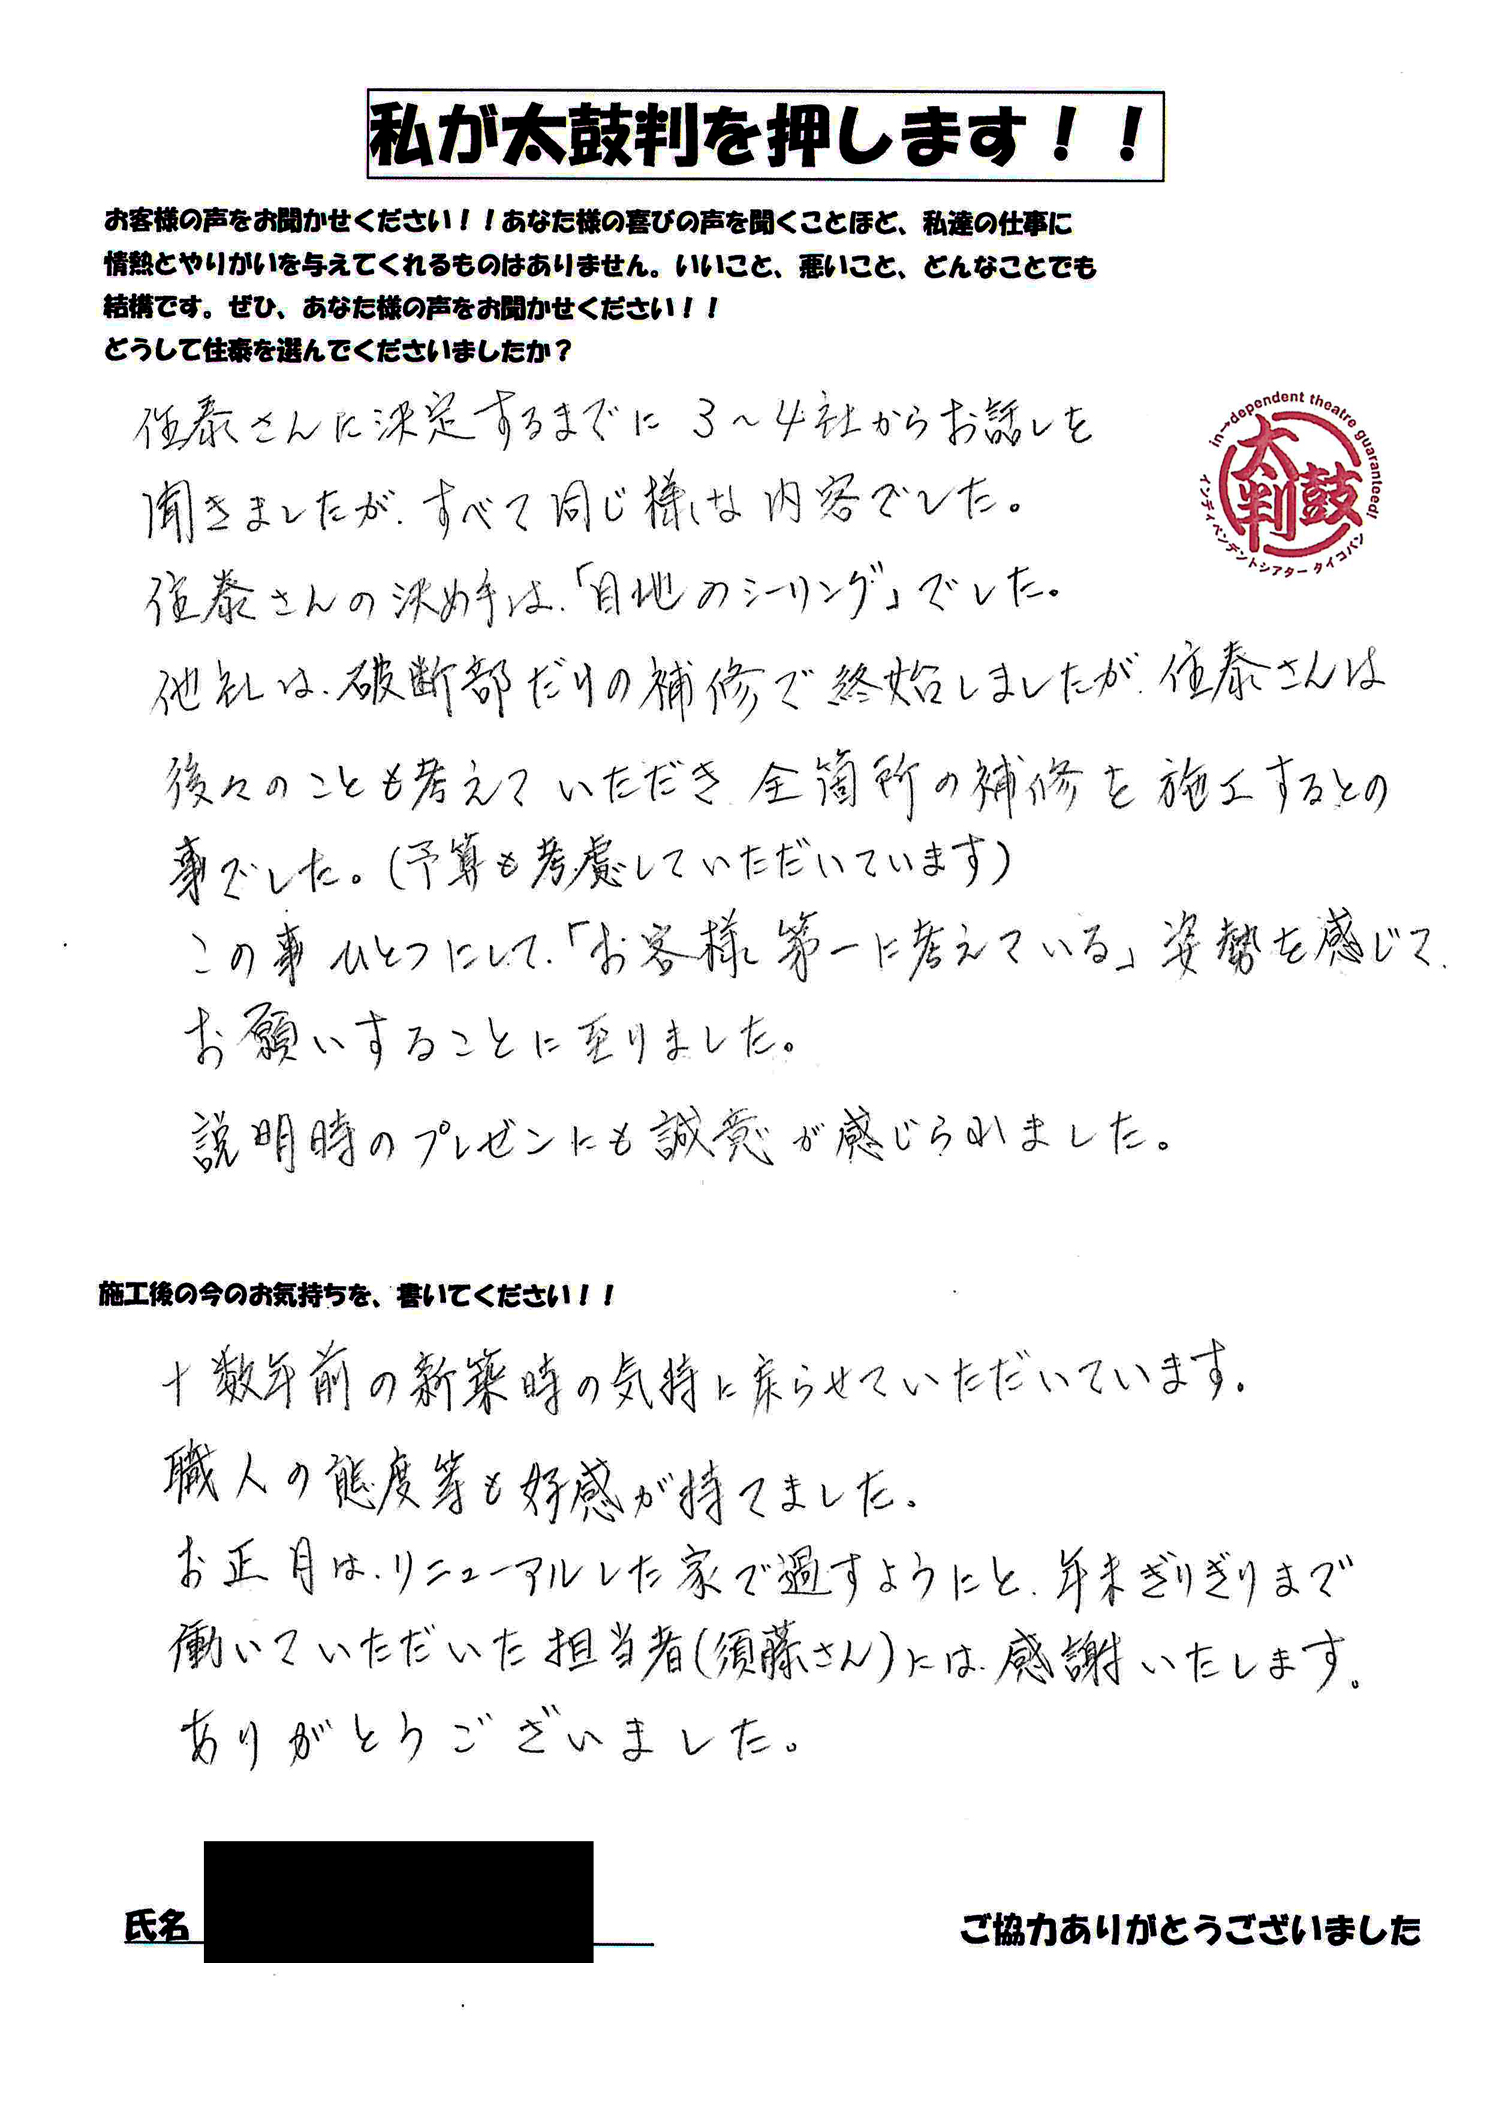 私が太鼓判を押します！！
お客様の声をお聞かせください！！あなた様の喜びの声を聞くことほど、私達の仕事に
情熱とやりがいを与えてくれるものはありません。いいこと、悪いこと、どんなことでも
結構です。ぜひ、あなた様の声をお聞かせください！！
どうして住泰を選んでくださいましたか？
住泰さんに決定するまでに 3～4社からお話しを
聞きましたが、すべて同じ様な内容でした。
住泰さんの決め手は、「目地のシーリング」でした。
他社は、破断部だけの補修で終始しましたが、住泰さんは
後々のことも考えていただき、全箇所の補修を施工するとの
事でした。(予算も考慮していただいています)
この事ひとつにして、「お客様第一に考えている」姿勢を感じて、
お願いすることに至りました。
説明時のプレゼンにも誠意が感じられました。
in→dependent theatre guaranteed!
太鼓判
インディペンデントシアター タイコバン
施工後の今のお気持ちを、書いてください！！
十数年前の新築時の気持に戻らせていただいています。
職人の態度等も好感が持てました。
お正月は、リニューアルした家で過すようにと、年末ぎりぎりまで
働いていただいた担当者(須藤さん)には、感謝いたします。
ありがとうございました。
氏名
ご協力ありがとうございました